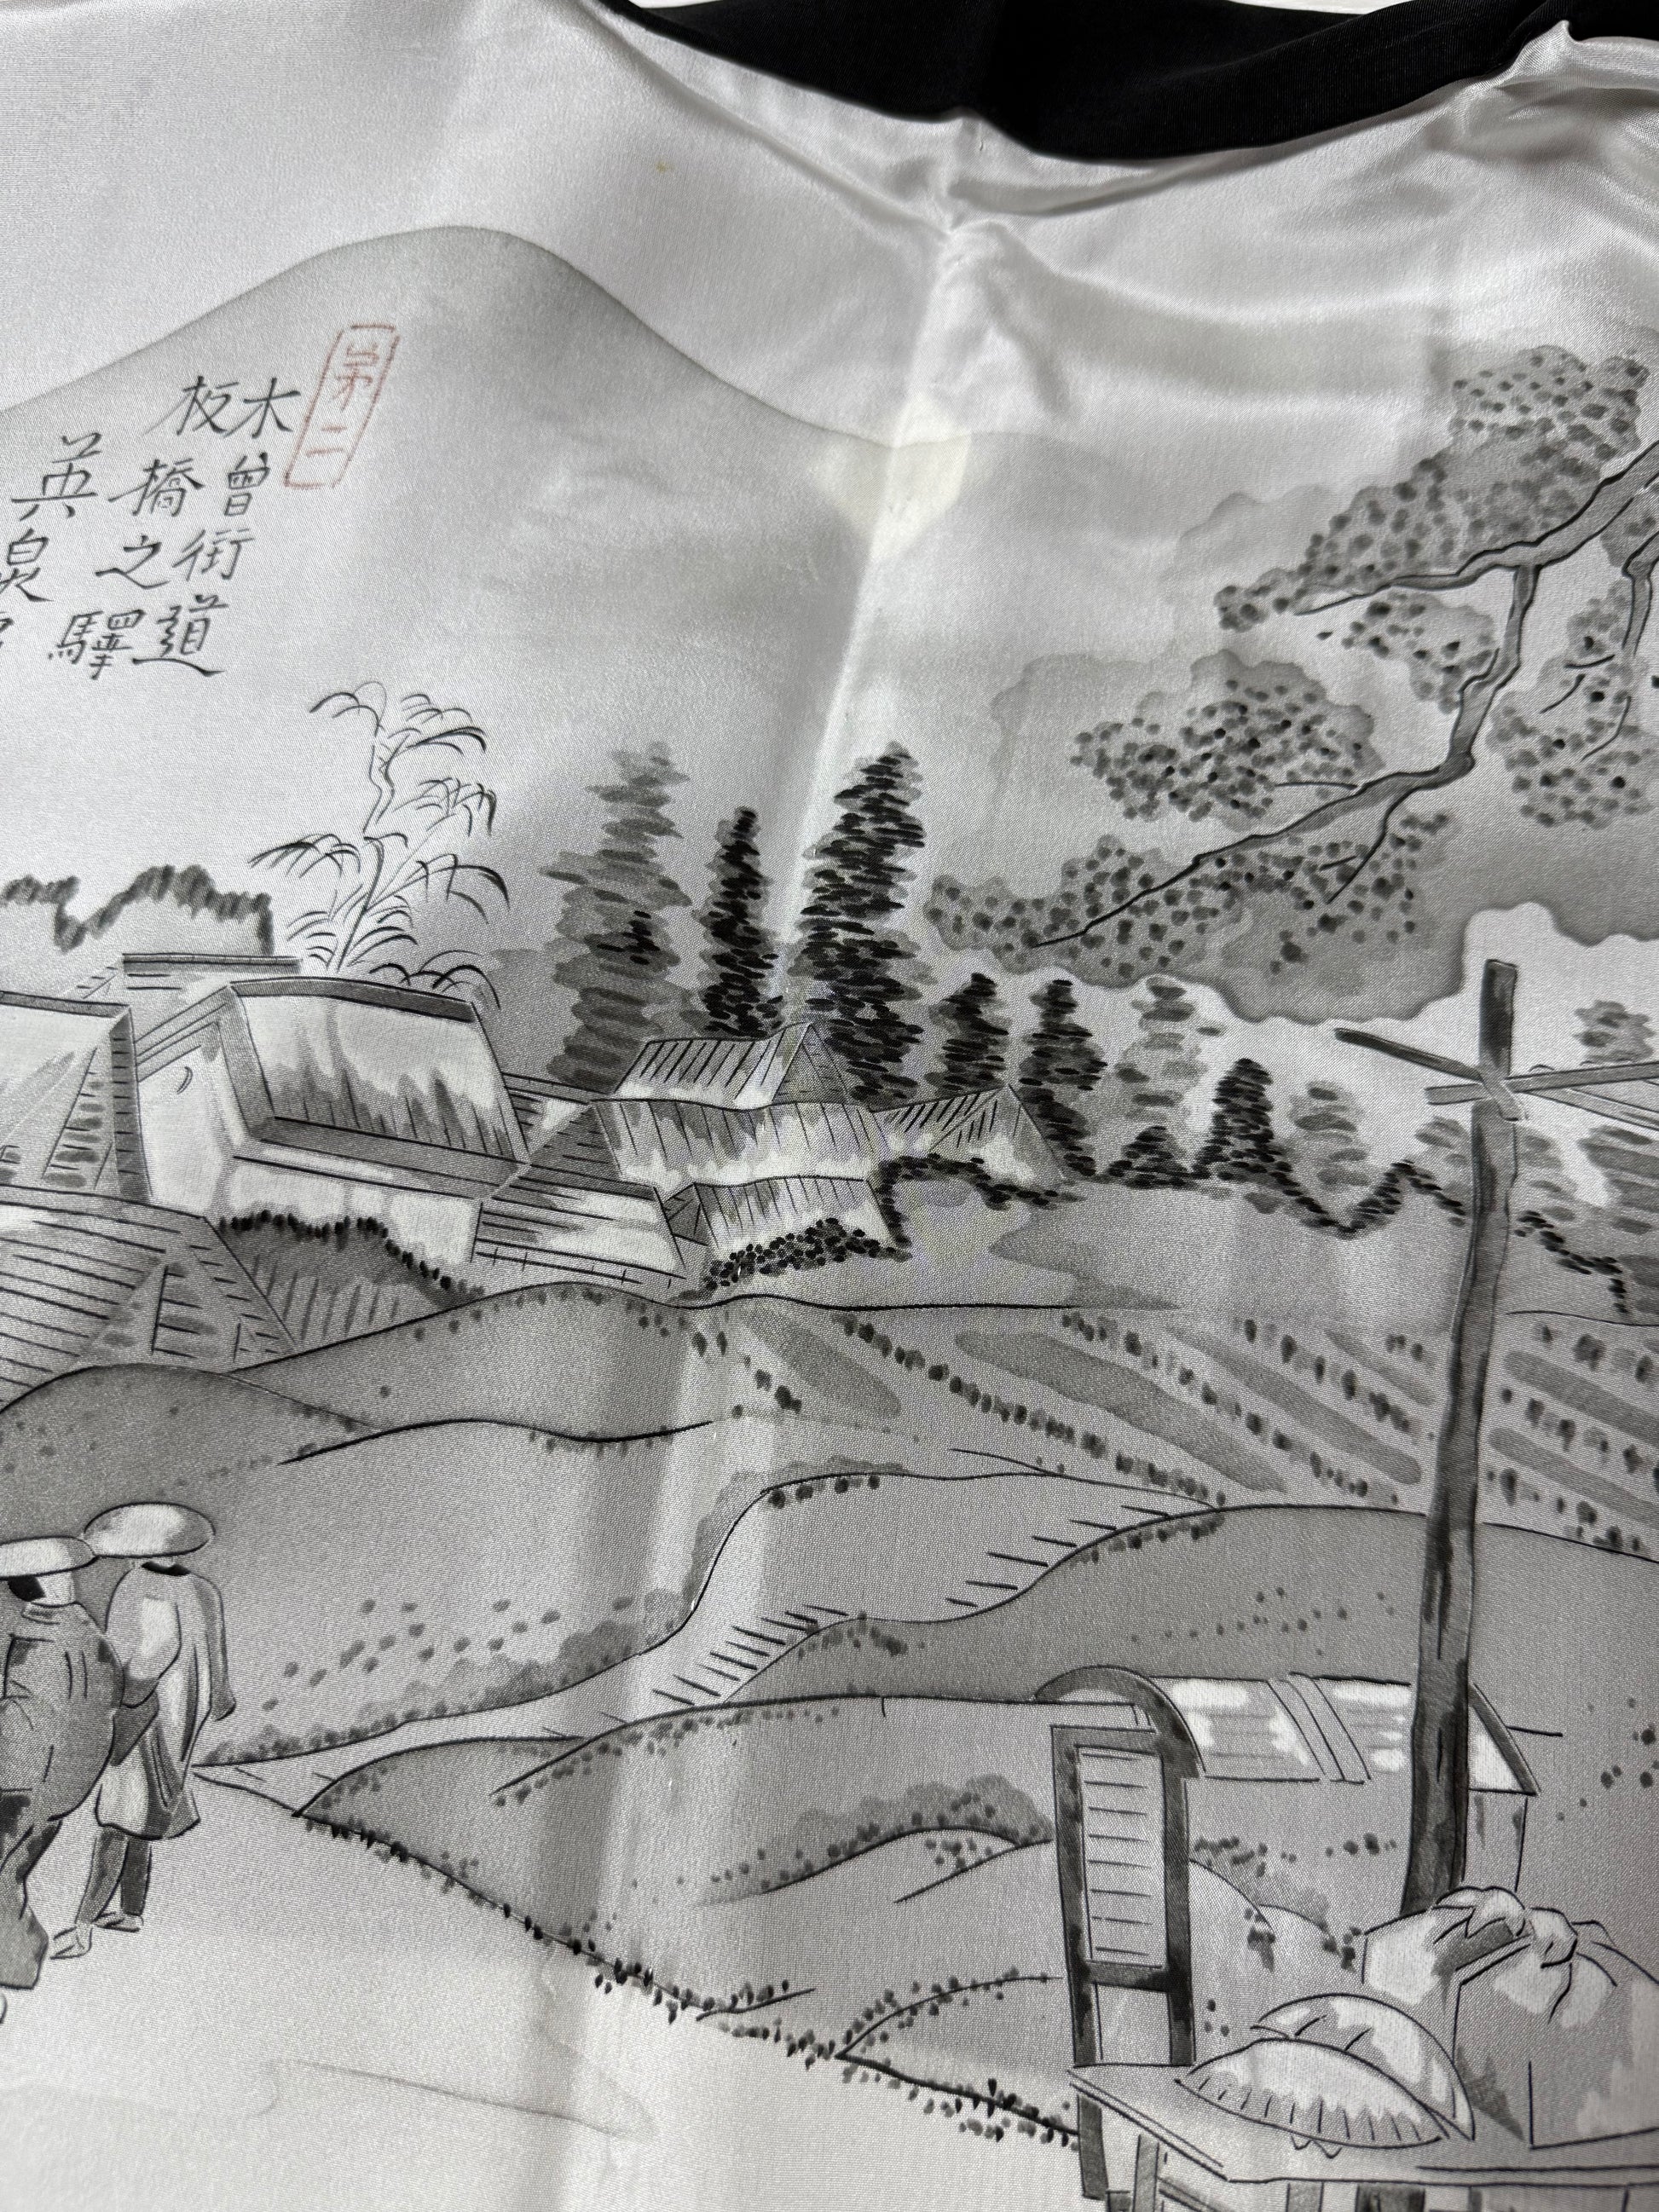 第二
木曾街道
板橋之驛
英泉